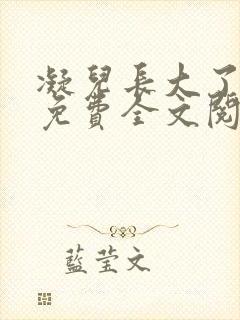 凝兒長大了
免費全文閱
藍莹文